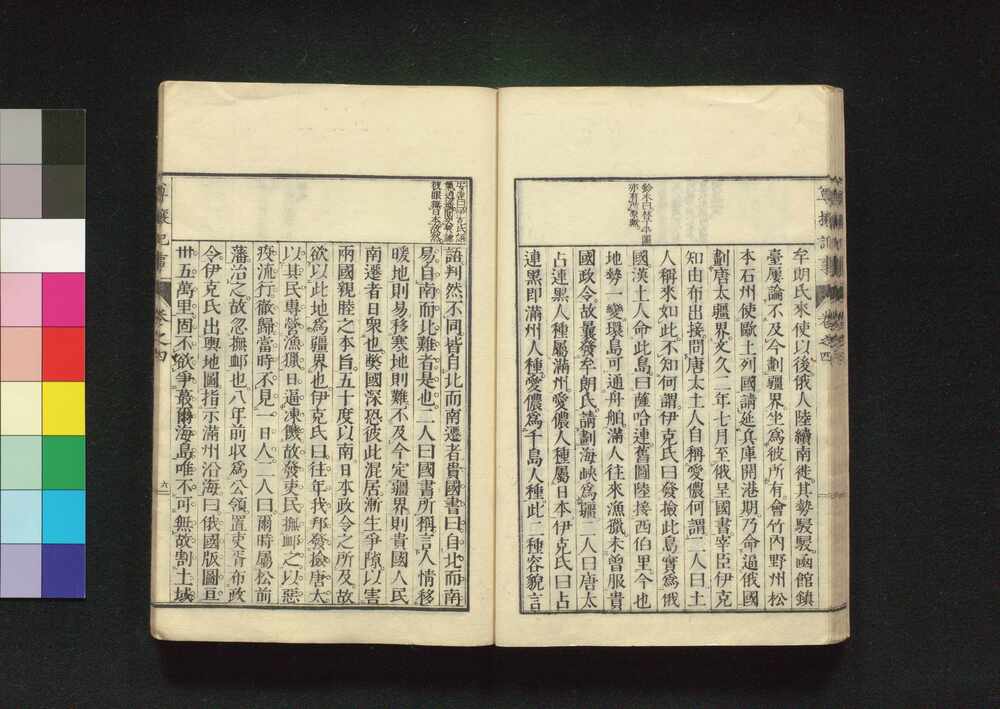 牟朗氏來使以後俄人陸續南徙其勢駸駸函館鎮
臺屢論不及今劃疆界坐爲彼所有會竹內野州松
本石州使歐土列國請延兵庫開港期乃命過俄國
劃唐太疆界文久二年七月至俄呈國書宰臣伊克
知由布出接問唐太土人自稱愛儂何謂二人曰土
人稱來如此不知何謂伊克氏曰發撿此島實爲俄
國漢土人命此島曰薩哈連舊圖陸接西伯里今也
地勢一變環島可通舟舶滿人往來漁獵未曾服貴
國政令故曩發牟朗氏請劃海峽爲疆二人曰唐太
占連黑人種屬滿州愛儂人種屬日本伊克氏曰占
連黑即滿州人種愛儂爲千島人種此二種容貌言
鈴木曰
亦有所
尊攘紀事
卷之四
語判然不同皆自北而南遷者貴國書曰自北而南
易自南而北難者是也二人曰國書所稱言人情移
暖地則易移寒地則難不及今定疆界則貴國人民
南遷者日衆也弊國深恐彼此混居漸生爭隙以害
兩國親睦之本旨五十度以南日本政令之所及故
欲以此地爲疆界也伊克氏曰往年我邦發撿唐太
以其民專營漁獵日逼凍饑故發吏民撫卹之以惡
疫流行徹歸當時不見一日人二人曰爾時屬松前
藩治之故忽撫卹也八年前収爲公領置吏背布政
令伊克氏出輿地圖指示滿州沿海曰俄國版圖亘
卅五萬里固不欲爭蕞爾海島唯不可無故割土域
六